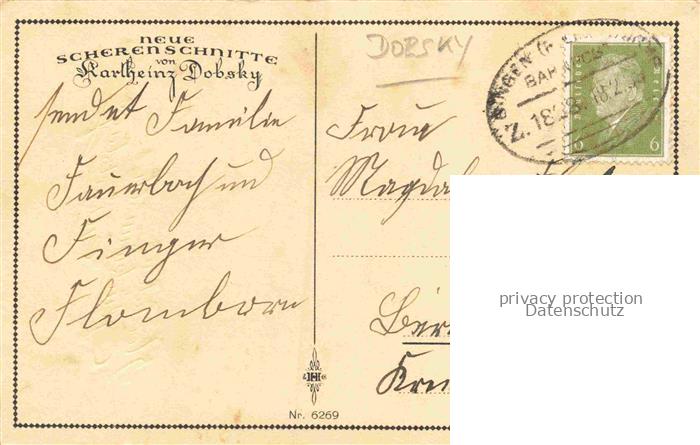 NEUE
SCHERENSCHNITTE
von
Karlheinz Dobsky
DOBSKY
BINGEN
Z. 1828
6 6
sendet Familie
Fauerbach und
Finger
Flomborn
Frau
Magdal
Nr. 6269
privacy protection
Datenschutz